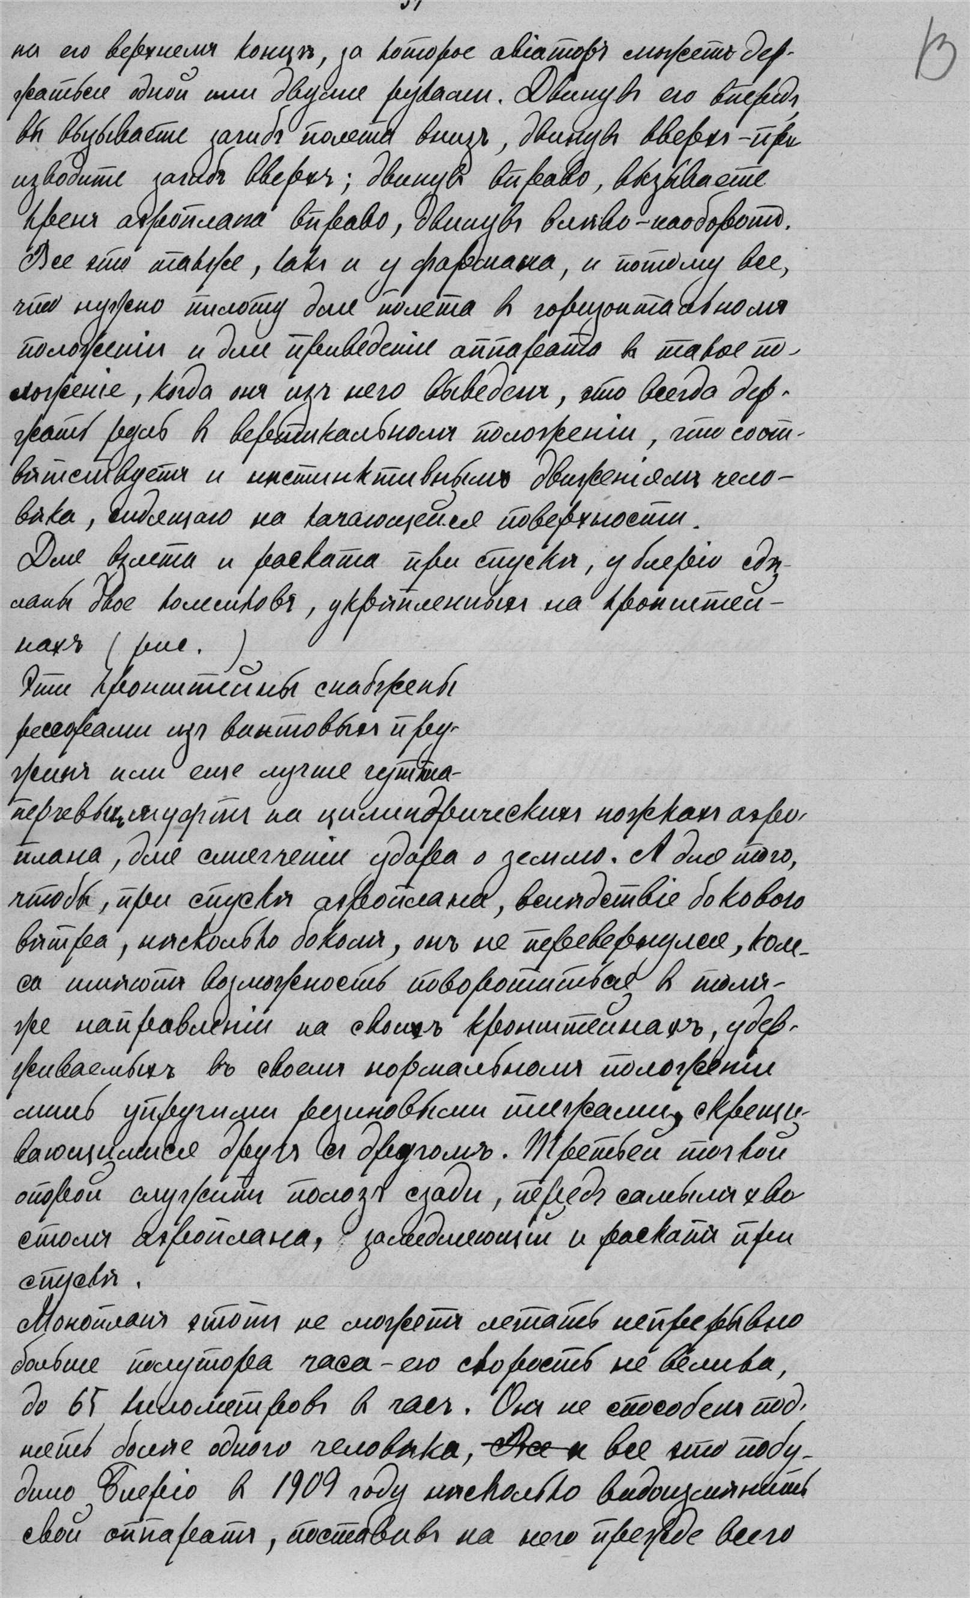 на его верхнемъ концѣ, за которое авіаторъ можетъ дер-
жаться одной или двумя руками. Двинувъ его впередъ
вы вызываете загибъ полета внизъ, двинувъ вверхъ - про
изводите загибъ вверхъ; двинувъ вправо, вызываете
кренъ аэроплана вправо, двинувъ влѣво - наоборотъ.
Все это также, какъ и у фармана, и потому все,
что нужно пилоту для полета въ горизонтальномъ
положеніи и для приведенія аппарата въ такое по-
ложеніе, когда онъ изъ него выведенъ, это всегда дер-
жать руль въ вертикальномъ положеніи, что соот-
вѣтствуетъ и инстинктивнымъ движеніямъ чело-
вѣка, сидящаго на качающейся поверхности.
Для взлета и раската при спускѣ, у блеріо сдѣ-
ланы двое колесиковъ, укрѣпленныхъ на кронштей-
нахъ ( рис. )
Эти кронштейны снабжены
рессорами изъ винтовыхъ пру-
жинъ или еще лучше гутта-
перчевыхъ муфтъ на цилиндрическихъ ножкахъ аэро-
плана, для смягченія удара о землю. А для того,
чтобы, при спускѣ аэроплана, вслѣдствіе бокового
вѣтра, нѣсколько бокомъ, онъ не перевернулся, коле-
са имѣютъ возможность поворотиться въ томъ-
же направленіи на своихъ кронштейнахъ, удер-
живаемыхъ въ своемъ нормальномъ положеніи
лишь упругими резиновыми тяжами, скрещи-
вающимися другъ съ другомъ. Третьей точкой
опорой служитъ полозъ сзади, передъ самымъ хво
стомъ аэроплана, замедляющій и раскатъ при
спускѣ.
Монопланъ этотъ не можетъ летать непрерывно
больше полутора часа - его скорость не велика,
до 65 километровъ въ часъ. Онъ не способенъ под-
нять болѣе одного человѣка, Все и все это побу-
дило Блеріо въ 1909 году нѣсколько видоизмѣнить
свой аппаратъ, поставивъ на него прежде всего